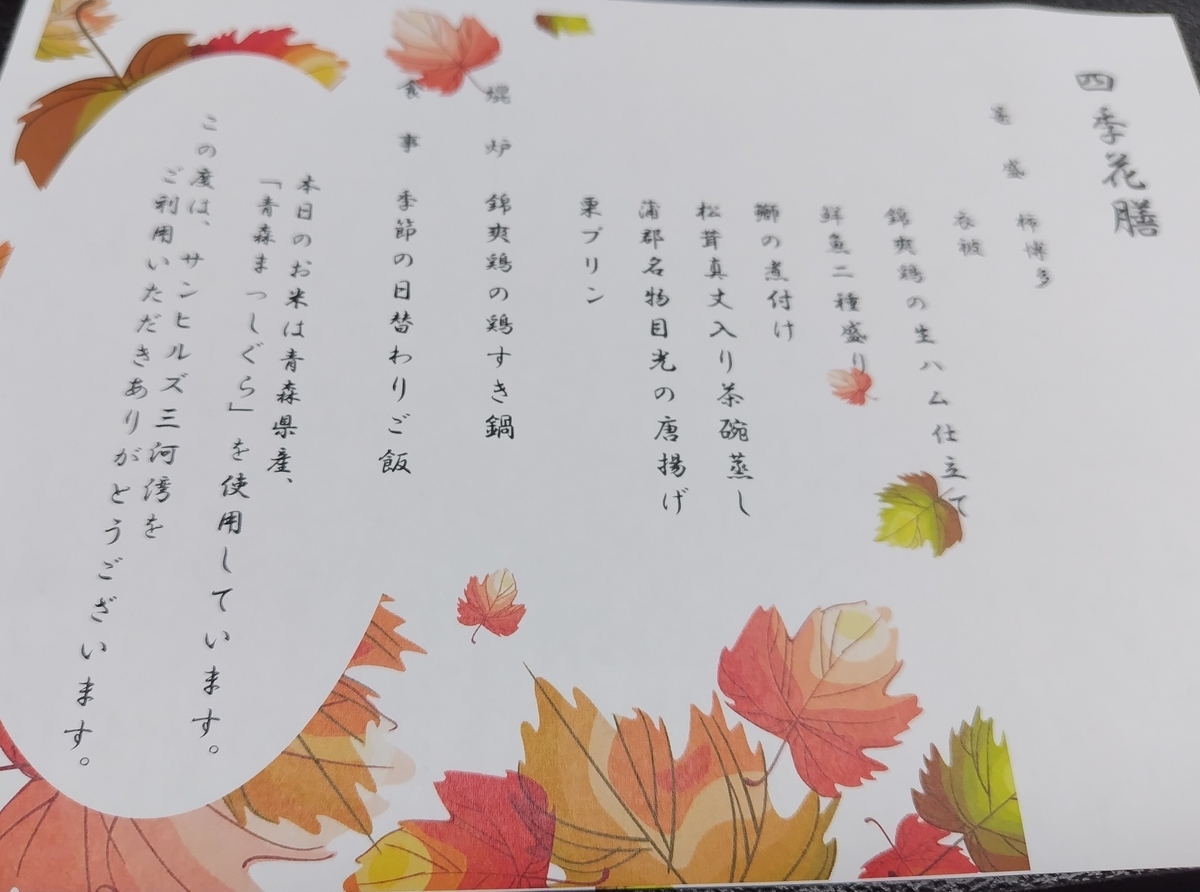 四季花膳
盛 柿博多
衣被
錦爽鶏の生ハム仕立て
鮮魚二種盛り
鰤の煮付け
松茸真丈入り茶碗蒸し
蒲郡名物目光の唐揚げ
栗プリン
焜炉 錦爽鶏の鶏すき鍋
食事 季節の日替わりご飯
本日のお米は青森県産、
「青森まっしぐら」を使用しています。
この度は、サンヒルズ三河湾を
ご利用いただきありがとうございます。